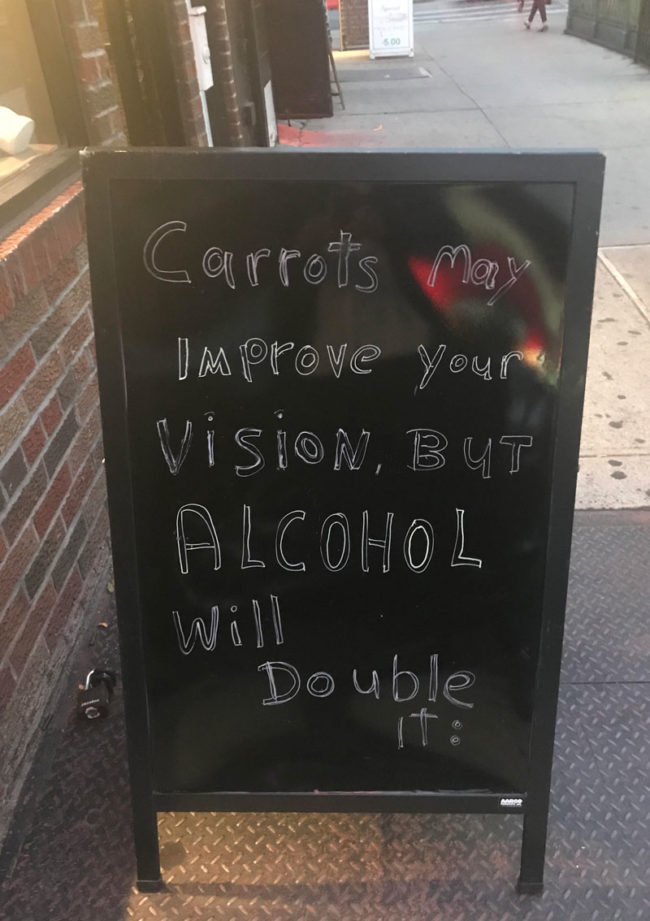 5.00
Carrots May
Improve your
Vision, But
ALCOHOL
Will
Double
it: